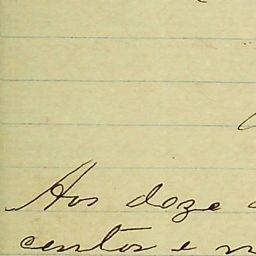 Aos doze
centos e